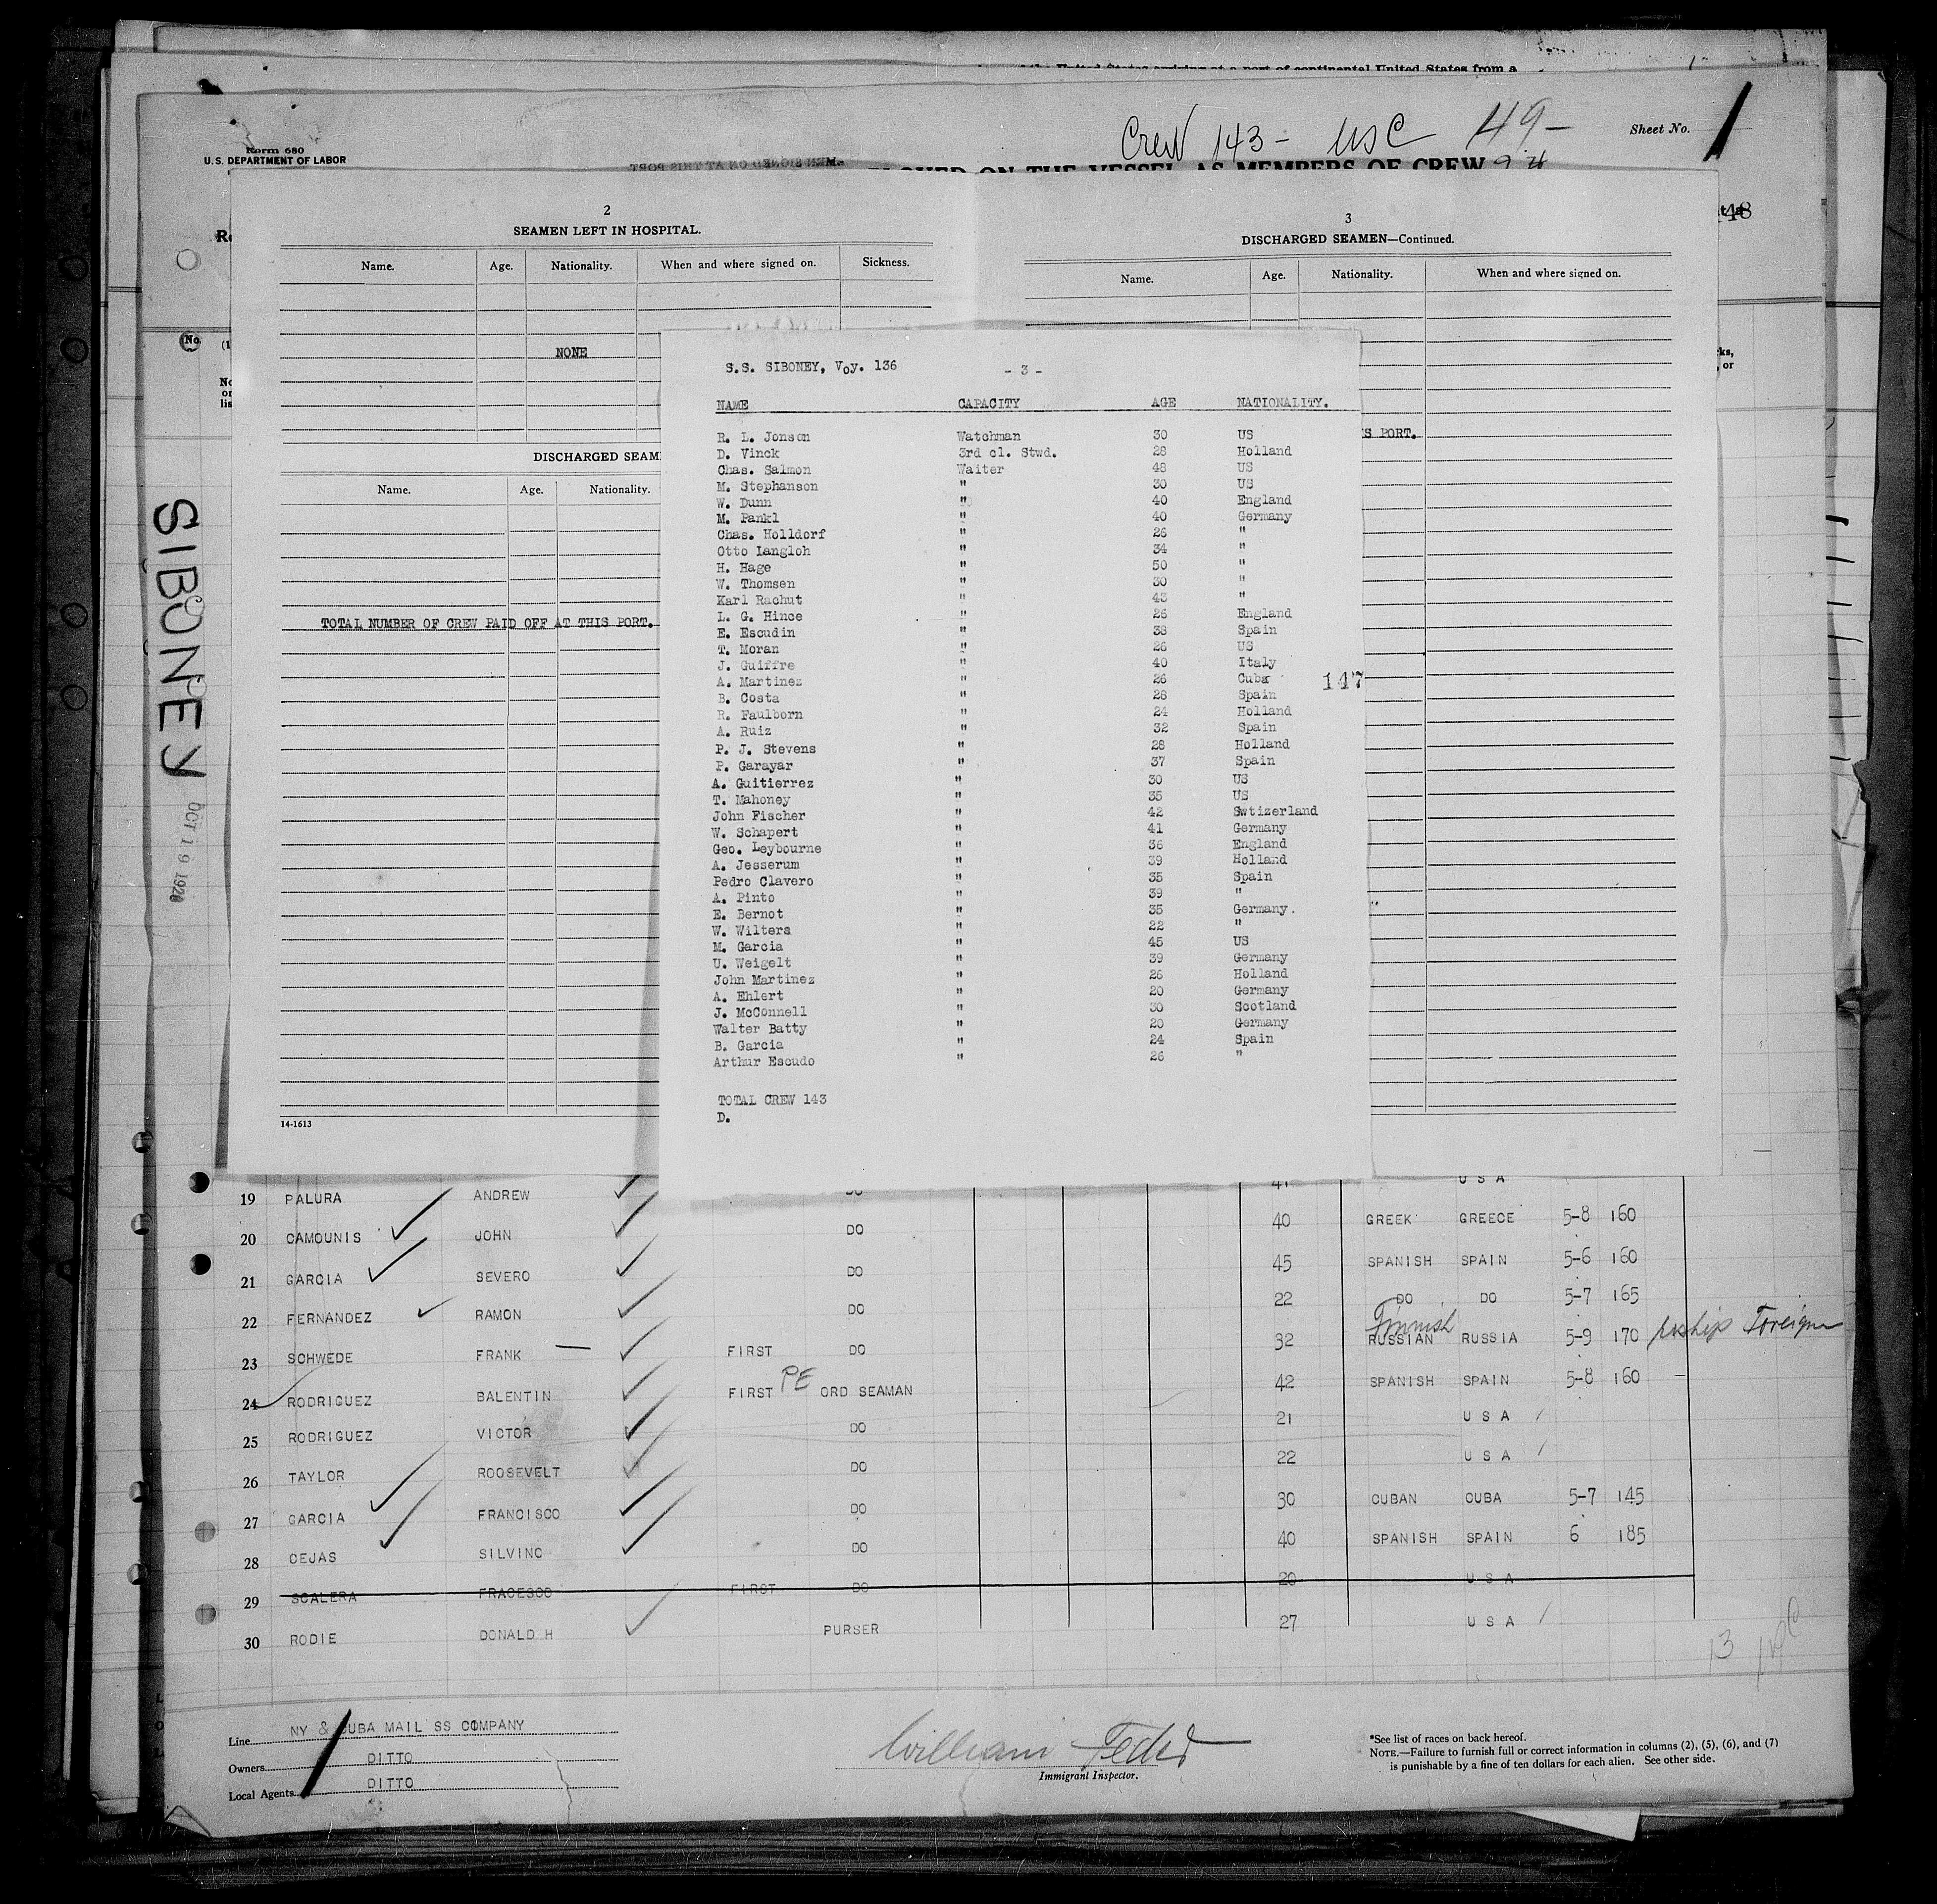 Crew 143 - USC 49 -
Sheet No. 1
Form 680
U.S. DEPARTMENT OF LABOR
ON THE VESSEL AS MEMBERS OF CREW
SIBONEY
OCT 19 1926
148
2
SEAMEN LEFT IN HOSPITAL.
Name. Age. Nationality. When and where signed on. Sickness.
NONE
DISCHARGED SEAM
Name. Age. Nationality.
TOTAL NUMBER OF CREW PAID OFF AT THIS PORT.
14-1613
3
DISCHARGED SEAMEN—Continued.
Name. Age. Nationality. When and where signed on.
S PORT.
S.S. SIBONEY, Voy. 136 - 3 -
NAME CAPACITY AGE NATIONALITY.
R. L. Jonson Watchman 30 US
D. Vinck 3rd cl. Stwd. 28 Holland
Chas. Salmon Waiter 48 US
M. Stephanson " 30 US
W. Dunn " 40 England
M. Pankl " 40 Germany
Chas. Holldorf " 26 "
Otto Langloh " 34 "
H. Hage " 50 "
W. Thomsen " 30 "
Karl Rachut " 43 "
L. G. Hince " 26 England
E. Escudin " 38 Spain
T. Moran " 26 US
J. Guiffre " 40 Italy
A. Martinez " 26 Cuba 147
B. Costa " 28 Spain
R. Faulborn " 24 Holland
A. Ruiz " 32 Spain
P. J. Stevens " 28 Holland
P. Garayar " 37 Spain
A. Guitierrez " 30 US
T. Mahoney " 35 US
John Fischer " 42 Swtizerland
W. Schapert " 41 Germany
Geo. Leybourne " 36 England
A. Jesserum " 39 Holland
Pedro Clavero " 35 Spain
A. Pinto " 39 "
E. Bernot " 35 Germany.
W. Wilters " 22 "
M. Garcia " 45 US
U. Weigelt " 39 Germany
John Martinez " 26 Holland
A. Ehlert " 20 Germany
J. McConnell " 30 Scotland
Walter Batty " 20 Germany
B. Garcia " 24 Spain
Arthur Escudo " 26 "
TOTAL CREW 143
D.
19 PALURA ANDREW DO 41 U S A
20 CAMOUNIS JOHN DO 40 GREEK GREECE 5-8 160
21 GARCIA SEVERO DO 45 SPANISH SPAIN 5-6 160
22 FERNANDEZ RAMON DO 22 DO DO 5-7 165
Finnish
23 SCHWEDE FRANK — FIRST DO 32 RUSSIAN RUSSIA 5-9 170 Reship Foreign
24 RODRIGUEZ BALENTIN FIRST PE ORD SEAMAN 42 SPANISH SPAIN 5-8 160
25 RODRIGUEZ VICTOR DO 21 U S A
26 TAYLOR ROOSEVELT DO 22 U S A
27 GARCIA FRANCISCO DO 30 CUBAN CUBA 5-7 145
28 CEJAS SILVINO DO 40 SPANISH SPAIN 6 185
29 SCALERA FRACESCO FIRST DO 20 U S A
30 RODIE DONALD H PURSER 27 U S A
13
Line NY & CUBA MAIL SS COMPANY
Owners DITTO
Local Agents DITTO
William
Immigrant Inspector.
*See list of races on back hereof.
NOTE.—Failure to furnish full or correct information in columns (2), (5), (6), and (7)
is punishable by a fine of ten dollars for each alien. See other side.